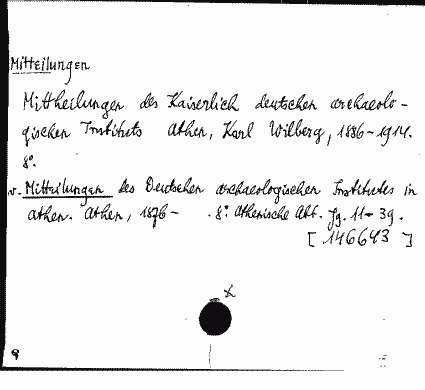 Mitteilungen
Mittheilungen des Kaiserlich deutschen archaeolo-
gischen Instituts Athen, Karl Wilberg, 1886-1914.
8°.
v. Mitteilungen des Deutschen archaeologischen Institutes in
Athen. Athen, 1876- . 8°. Athenische Abt. Jg. 11-39.
[ 146643 ]
x
9